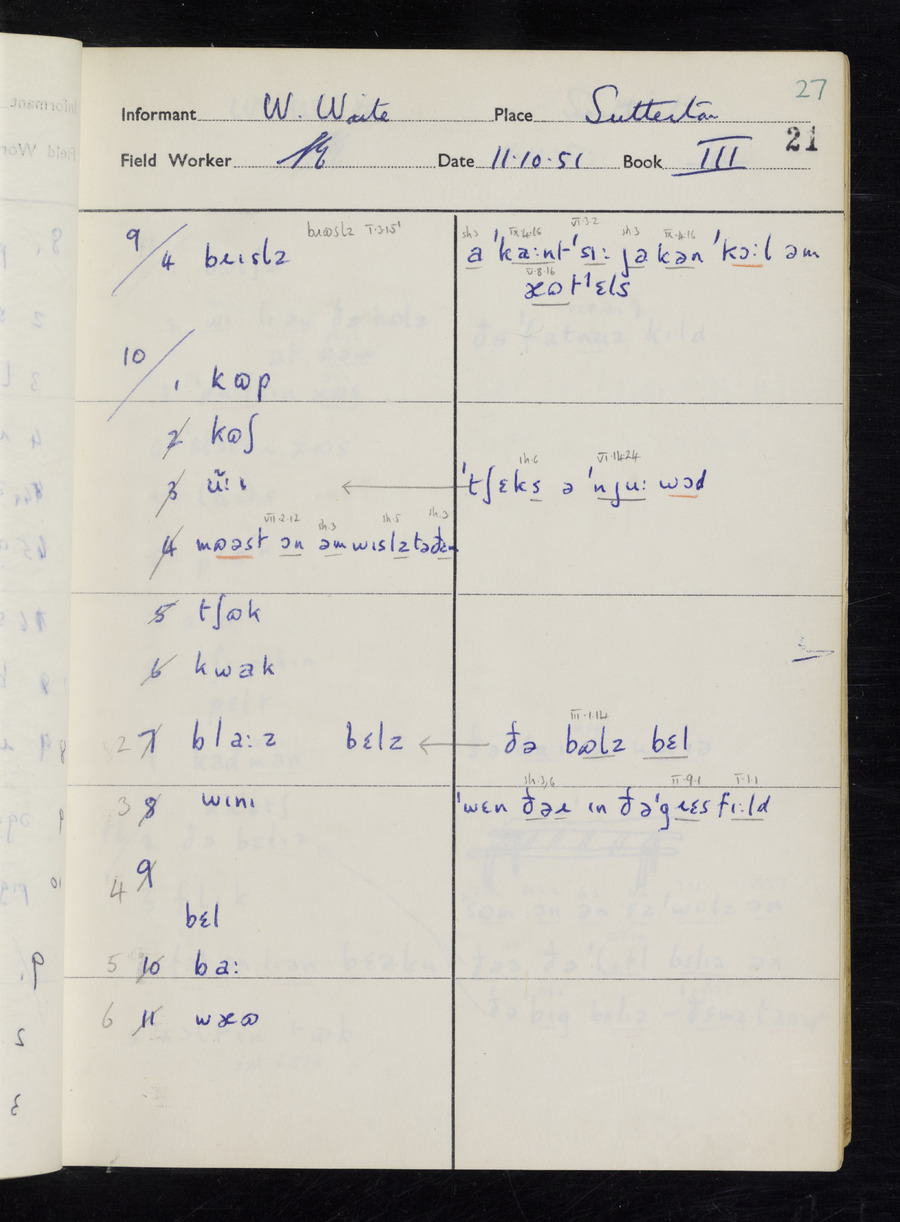 27
Informant W. Waite Place Sutterton
21
Field Worker Date 11·10·51 Book III
9/4 bɹɪslz
sh.3 IX.4.16 VI.3.2 sh.3 IX.4.16
a ˈkaːnt ˈsɪː jə kən ˈkɔːl əm
V.8.16
ɷt ˈɛls
10/1 kɷp
2 kɷʃ
sh.6 VI.14.24
3 ˈtʃɛks ə ˈnjuː wɔd
VII.2.12 sh.3 sh.5 sh.3
4 mɷəst ɔn əm wɪslz tə ðɛm
5 tʃɷk
6 kwak
III.1.14
2 7 blaːz bɛlz ← ðə bɷlz bɛl
sh.3,6 II.9.1 I.1.1
3 8 wɪnɪ ˈwɛn ðəɪ ɪn ðə ˈgɹɛs fɪːld
4 9
bɛl
5 10 baː
6 11 wæɷ